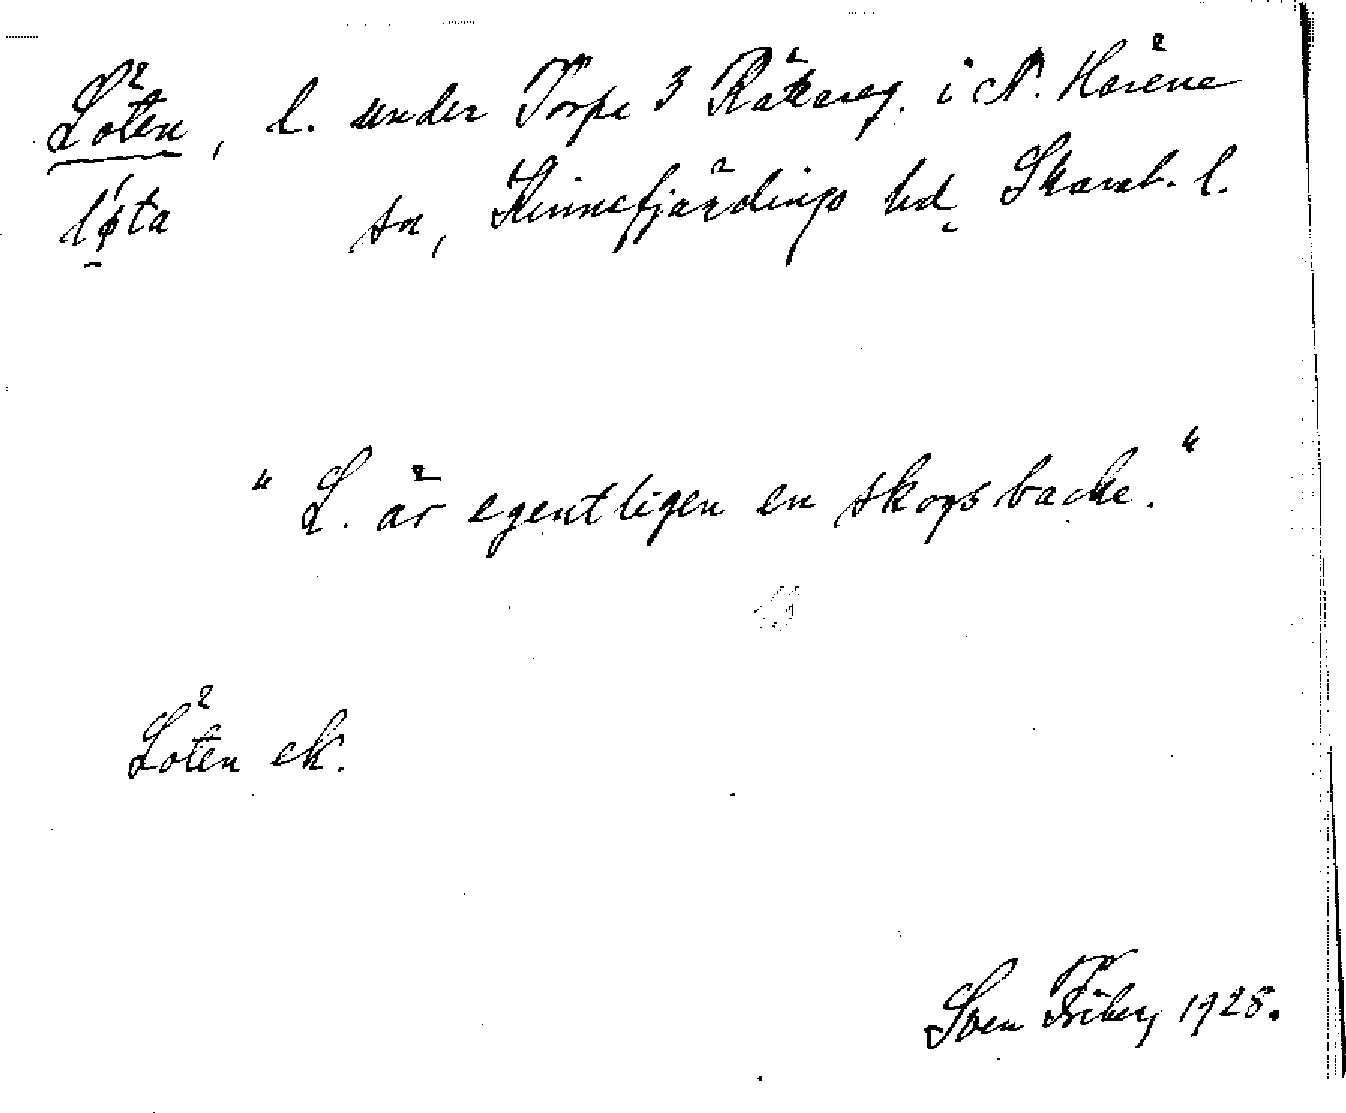 Löten, l. under Torpe 3 Räkareg. i N. Härene
løta sn, Kinnefjärdings hd, Skarab. l.
"L. är egentligen en skogsbacke."
Löten ek.
Sven Friberg 1928.